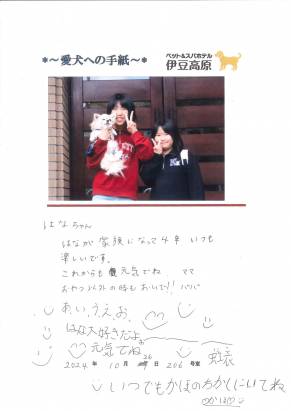 *～愛犬への手紙～*
ペット&スパホテル
伊豆高原
はなちゃん
はなが家族になって4年 いつも
楽しいです。
これからも元気でね ママ
おやつ以外の時もおいで!! パパ
あ、い、う、え、お、
はな大好きだよ
元気でね
2024年10月26日 206号室
いつでもかほのちかくにいてね